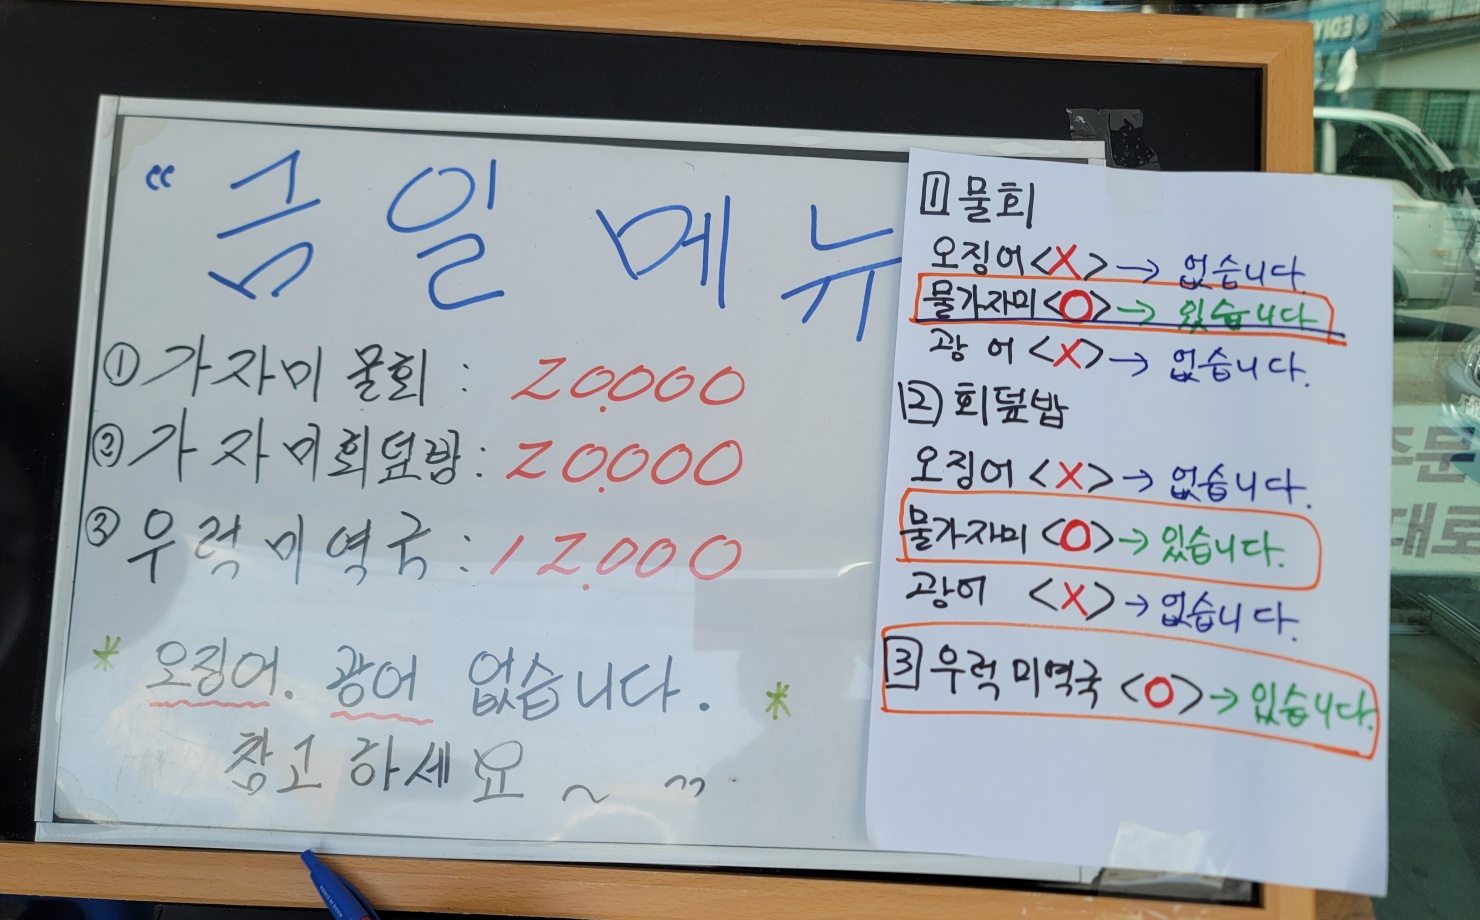 “ 금일 메뉴
① 가자미 물회 : 20.000
② 가자미회덮밥 : 20.000
③ 우럭미역국 : 12.000
* 오징어. 광어 없습니다. *
참고하세요 ~ ^^
1 물회
오징어 <X> → 없습니다.
물가자미 <O> → 있습니다
광어 <X> → 없습니다.
2 회덮밥
오징어 <X> → 없습니다.
물가자미 <O> → 있습니다.
광어 <X> → 없습니다.
3 우럭미역국 <O> → 있습니다.
주문
대로